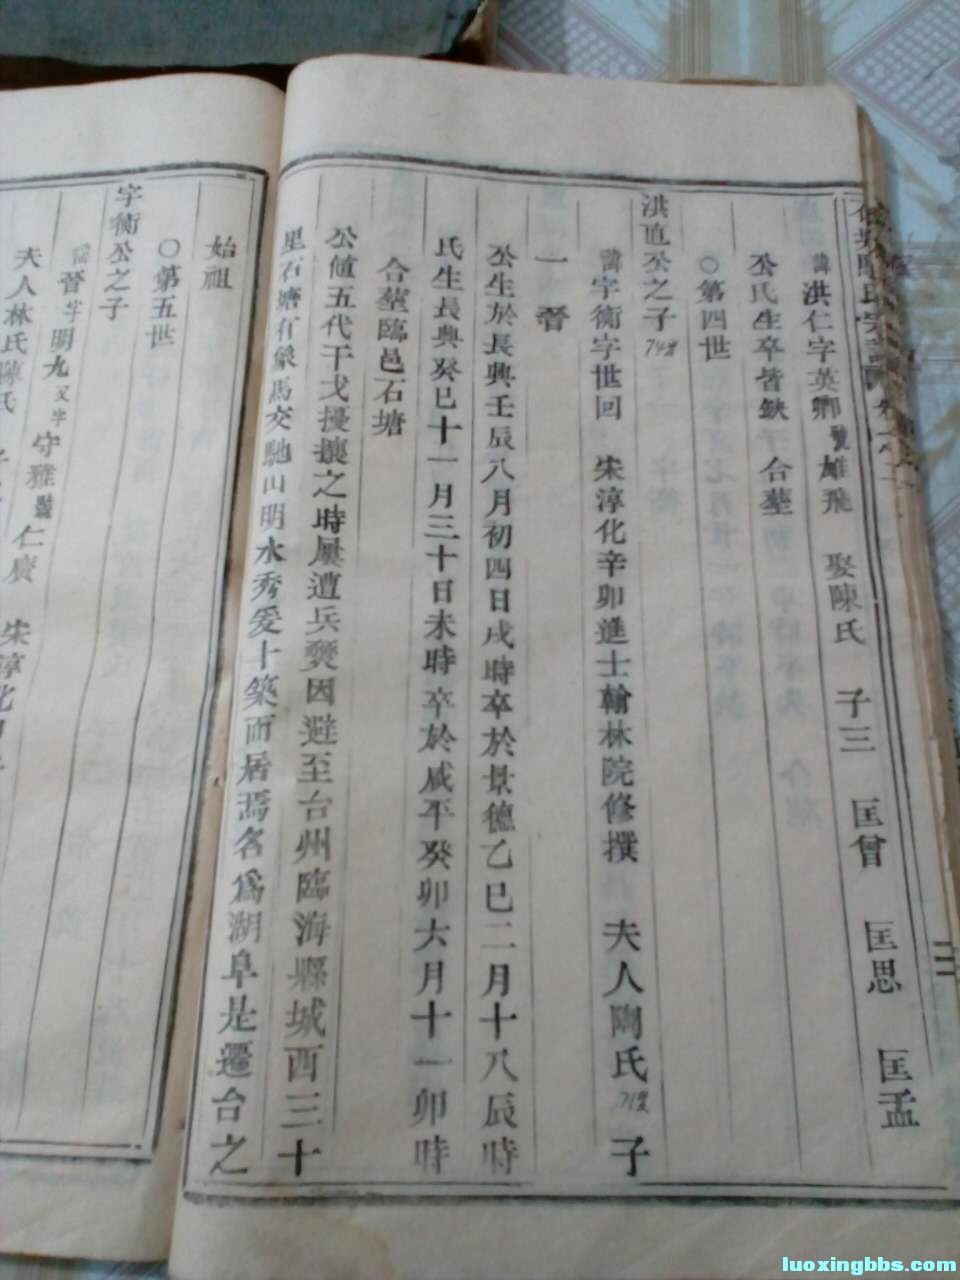 諱洪仁字英卿號雄飛 娶陳氏 子三 匡曾 匡思 匡孟
公氏生卒皆缺 合塟
○第四世
洪直公之子74歲
諱宇衡字世回 宋淳化辛卯進士翰林院修撰 夫人陶氏71歲 子
一 晉
公生於長興壬辰八月初四日戌時卒於景德乙巳二月十八辰時
氏生長興癸巳十一月三十日未時卒於咸平癸卯六月十一卯時
合塟臨邑石塘
公値五代干戈擾攘之時屢遭兵燹因避至台州臨海縣城西三十
里石塘有象馬交馳山明水秀爰卜築而居焉名爲湖阜是遷台之
始祖
○第五世
宇衡公之子
諱晉字明九又字守雅號仁廣 宋淳化
夫人林氏陳氏
luoxingbbs.com